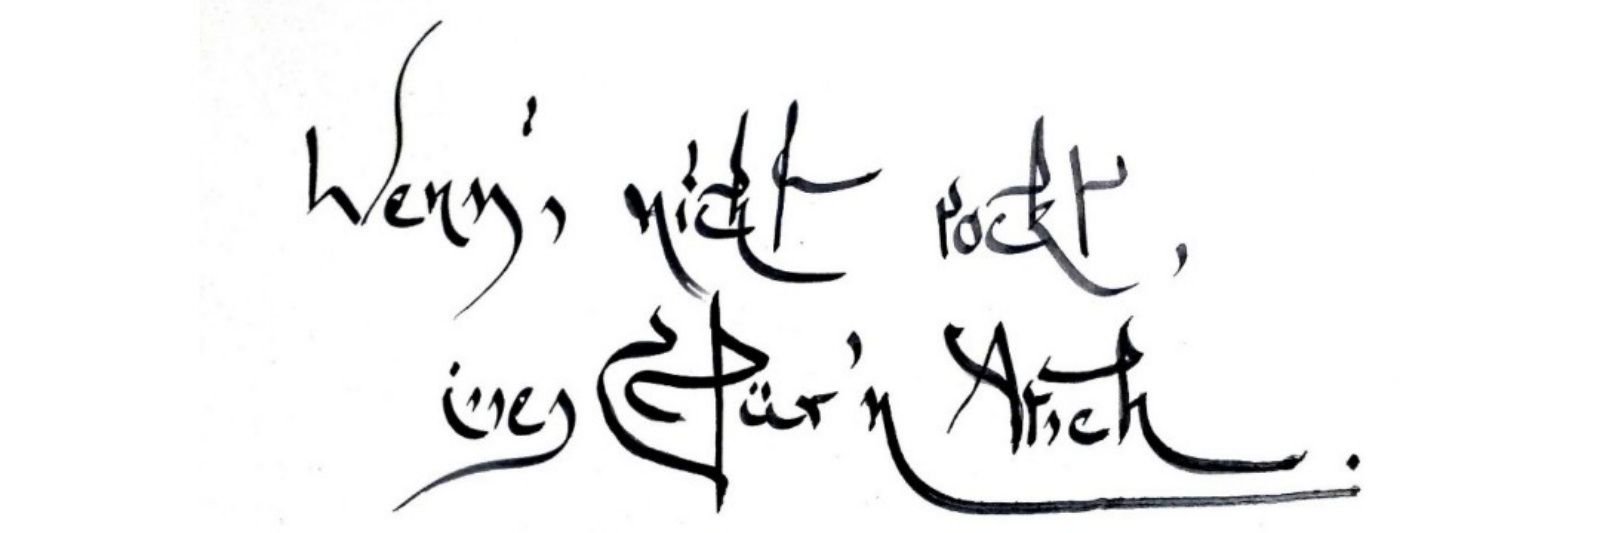 Wenn's nicht rockt,
isses für'n Arsch.